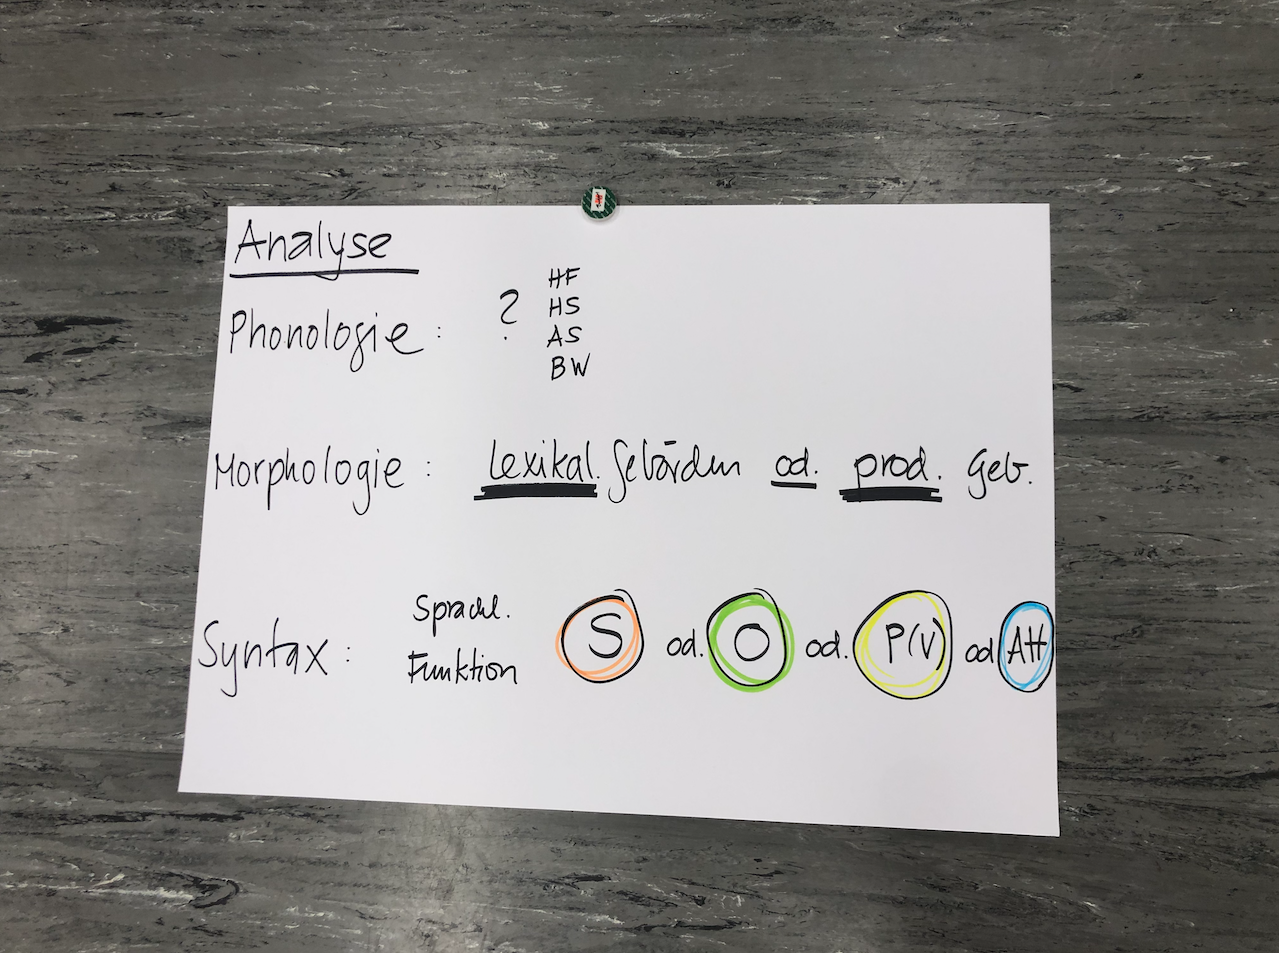 Analyse
Phonologie : ?
HF
HS
AS
BW
Morphologie : Lexikal. Gebärden od. prod. Geb.
Syntax : Sprachl. Funktion S od. O od. P(V) od Att